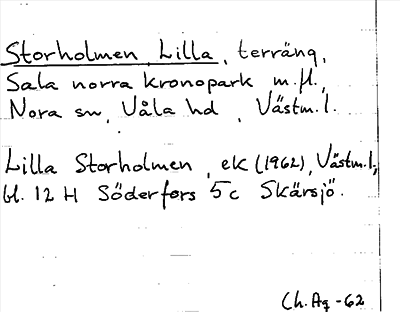 Storholmen, Lilla, terräng,
Sala norra kronopark m.fl.,
Nora sn, Våla hd, Västm.l.
Lilla Storholmen, ek (1962), Västm.l.,
bl. 12 H Söderfors 5c Skärsjö.
Ch. Ag -62